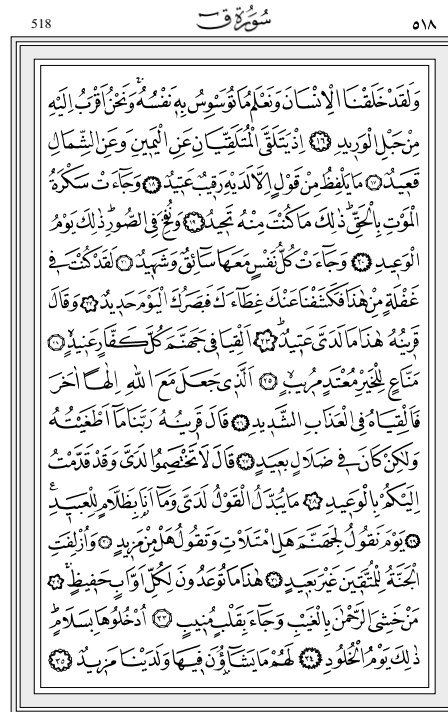 518 سُورَةُ ق ٥١٨
وَلَقَدْ خَلَقْنَا الْاِنْسَانَ وَنَعْلَمُ مَا تُوَسْوِسُ بِهٖ نَفْسُهُۚ وَنَحْنُ اَقْرَبُ اِلَيْهِ
مِنْ حَبْلِ الْوَرٖيدِ ﴿١٦﴾ اِذْ يَتَلَقَّى الْمُتَلَقِّيَانِ عَنِ الْيَمٖينِ وَعَنِ الشِّمَالِ
قَعٖيدٌ ﴿١٧﴾ مَا يَلْفِظُ مِنْ قَوْلٍ اِلَّا لَدَيْهِ رَقٖيبٌ عَتٖيدٌ ﴿١٨﴾ وَجَٓاءَتْ سَكْرَةُ
الْمَوْتِ بِالْحَقِّؕ ذٰلِكَ مَا كُنْتَ مِنْهُ تَحٖيدُ ﴿١٩﴾ وَنُفِخَ فِى الصُّورِؕ ذٰلِكَ يَوْمُ
الْوَعٖيدِ ﴿٢٠﴾ وَجَٓاءَتْ كُلُّ نَفْسٍ مَعَهَا سَٓائِقٌ وَشَهٖيدٌ ﴿٢١﴾ لَقَدْ كُنْتَ فٖى
غَفْلَةٍ مِنْ هٰذَا فَكَشَفْنَا عَنْكَ غِطَٓاءَكَ فَبَصَرُكَ الْيَوْمَ حَدٖيدٌ ﴿٢٢﴾ وَقَالَ
قَرٖينُهُ هٰذَا مَا لَدَىَّ عَتٖيدٌؕ ﴿٢٣﴾ اَلْقِيَا فٖى جَهَنَّمَ كُلَّ كَفَّارٍ عَنٖيدٍۙ ﴿٢٤﴾
مَنَّاعٍ لِلْخَيْرِ مُعْتَدٍ مُرٖيبٍۙ ﴿٢٥﴾ اَلَّذٖى جَعَلَ مَعَ اللّٰهِ اِلٰهًا اٰخَرَ
فَاَلْقِيَاهُ فِى الْعَذَابِ الشَّدٖيدِ ﴿٢٦﴾ قَالَ قَرٖينُهُ رَبَّنَا مَٓا اَطْغَيْتُهُ
وَلٰكِنْ كَانَ فٖى ضَلَالٍ بَعٖيدٍ ﴿٢٧﴾ قَالَ لَا تَخْتَصِمُوا لَدَىَّ وَقَدْ قَدَّمْتُ
اِلَيْكُمْ بِالْوَعٖيدِ ﴿٢٨﴾ مَا يُبَدَّلُ الْقَوْلُ لَدَىَّ وَمَٓا اَنَا۬ بِظَلَّامٍ لِلْعَبٖيدِࣖ
﴿٢٩﴾ يَوْمَ نَقُولُ لِجَهَنَّمَ هَلِ امْتَلَاْتِ وَتَقُولُ هَلْ مِنْ مَزٖيدٍ ﴿٣٠﴾ وَاُزْلِفَتِ
الْجَنَّةُ لِلْمُتَّقٖينَ غَيْرَ بَعٖيدٍ ﴿٣١﴾ هٰذَا مَا تُوعَدُونَ لِكُلِّ اَوَّابٍ حَفٖيظٍۚ ﴿٣٢﴾
مَنْ خَشِىَ الرَّحْمٰنَ بِالْغَيْبِ وَجَٓاءَ بِقَلْبٍ مُنٖيبٍۙ ﴿٣٣﴾ اُدْخُلُوهَا بِسَلَامٍؕ
ذٰلِكَ يَوْمُ الْخُلُودِ ﴿٣٤﴾ لَهُمْ مَا يَشَٓاؤُ۫نَ فٖيهَا وَلَدَيْنَا مَزٖيدٌ ﴿٣٥﴾